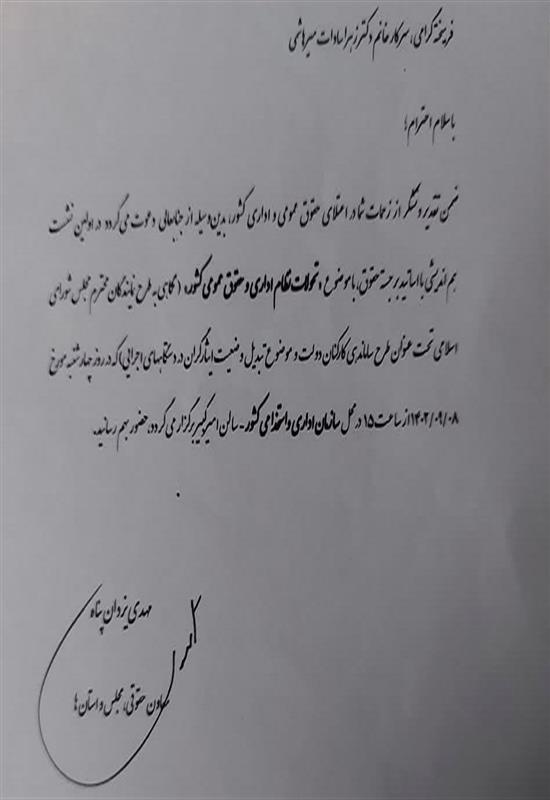 فرهیخته گرامی، سرکار خانم دکتر زهرا سادات میرهاشمی
با سلام و احترام؛
ضمن تقدیر و تشکر از زحمات شما در اعتلای حقوق عمومی و اداری کشور، بدین وسیله از جنابعالی دعوت می گردد در اولین نشست
هم اندیشی با اساتید برجسته حقوق، با موضوع «تحولات نظام اداری و حقوق عمومی کشور» (نگاهی به طرح نمایندگان محترم مجلس شورای
اسلامی تحت عنوان طرح ساماندهی کارکنان دولت و موضوع تبدیل وضعیت ایثارگران در دستگاههای اجرایی) که در روز چهارشنبه مورخ
۱۴۰۲/۰۹/۰۸ از ساعت ۱۵ در محل سازمان اداری و استخدامی کشور - سالن امیرکبیر برگزار می گردد، حضور بهم رسانید.
مهدی یزدان پناه
معاون حقوقی، مجلس و استان ها